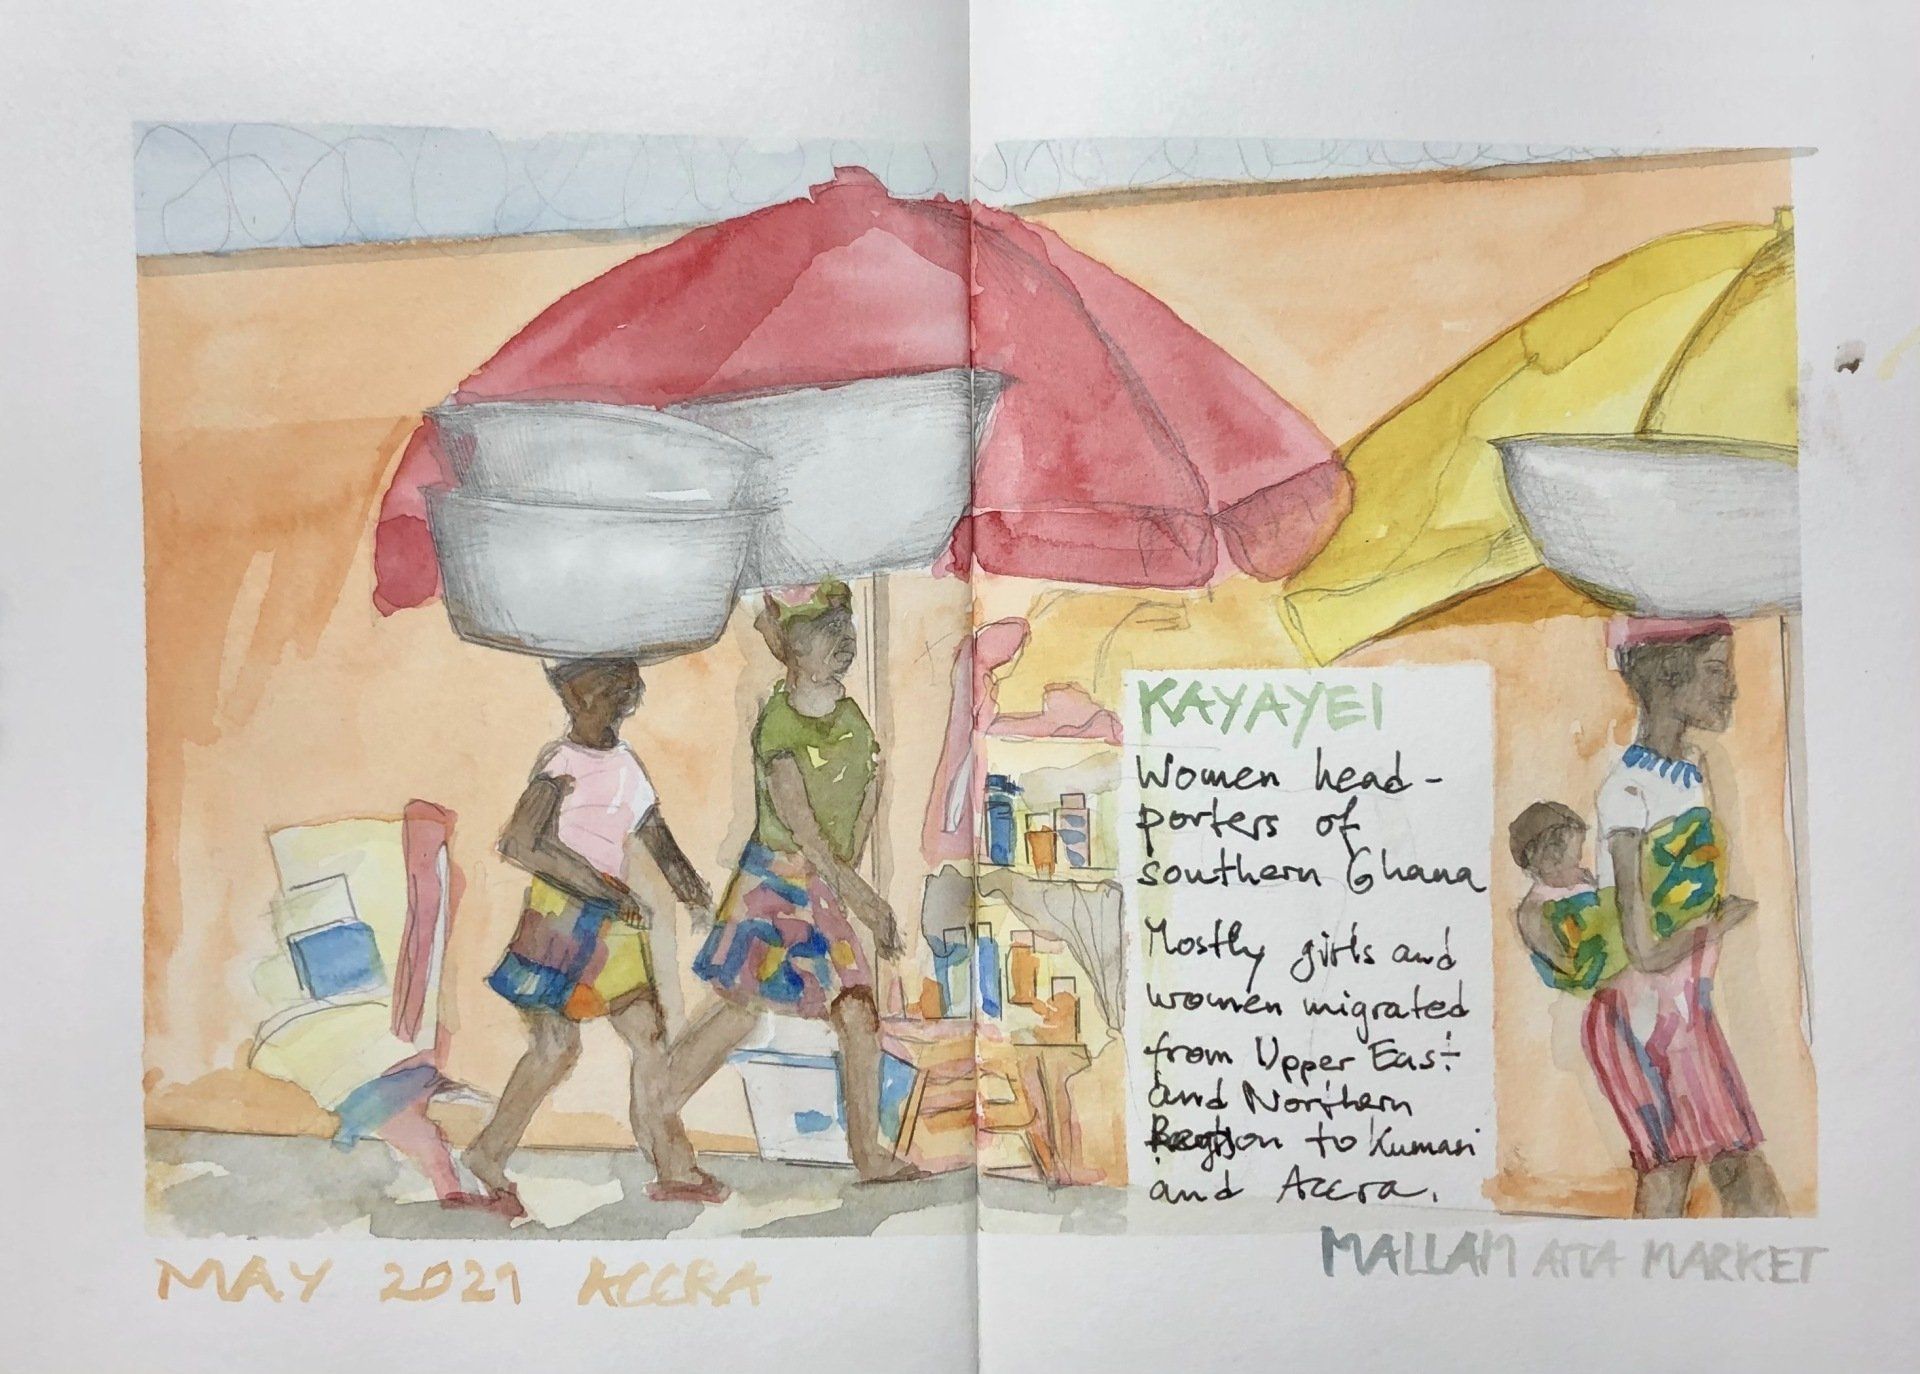 KAYAYEI
Women head-
porters of
southern Ghana
Mostly girls and
women migrated
from Upper East
and Northern
Region to Kumasi
and Accra.
MAY 2021 ACCRA
MALLAM ATTA MARKET